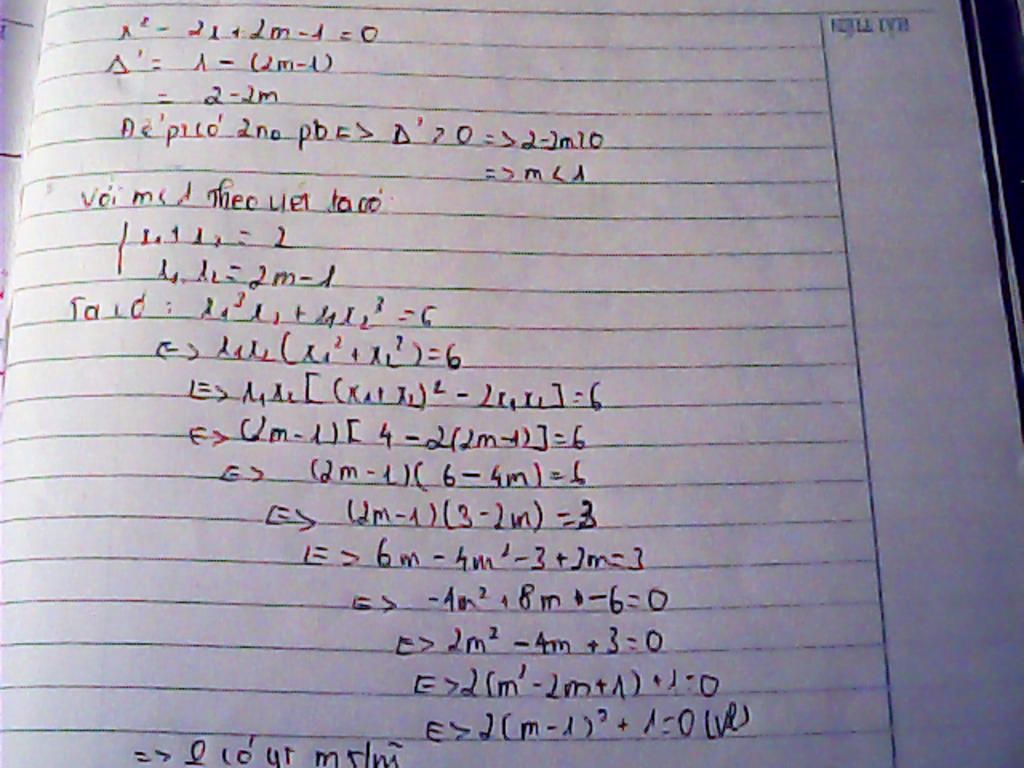 x² - 2x + 2m - 1 = 0
Δ' = 1 - (2m-1)
= 2-2m
Để pt có 2 no pb <=> Δ' > 0 => 2-2m>0
=> m < 1
Với m < 1 Theo viet ta có:
{ x₁ + x₂ = 2
x₁.x₂ = 2m - 1
Ta có : x₁³x₂ + x₁x₂³ = 6
<=> x₁x₂ (x₁² + x₂²) = 6
<=> x₁x₂ [(x₁+x₂)² - 2x₁x₂] = 6
<=> (2m-1)[4 - 2(2m-1)] = 6
<=> (2m-1)(6 - 4m) = 6
<=> (2m-1)(3-2m) = 3
<=> 6m - 4m² - 3 + 2m = 3
<=> -4m² + 8m - 6 = 0
<=> 2m² - 4m + 3 = 0
<=> 2(m² - 2m + 1) + 1 = 0
<=> 2(m-1)² + 1 = 0 (vl)
=> 0 có gt m t/m
HẢI TIẾN